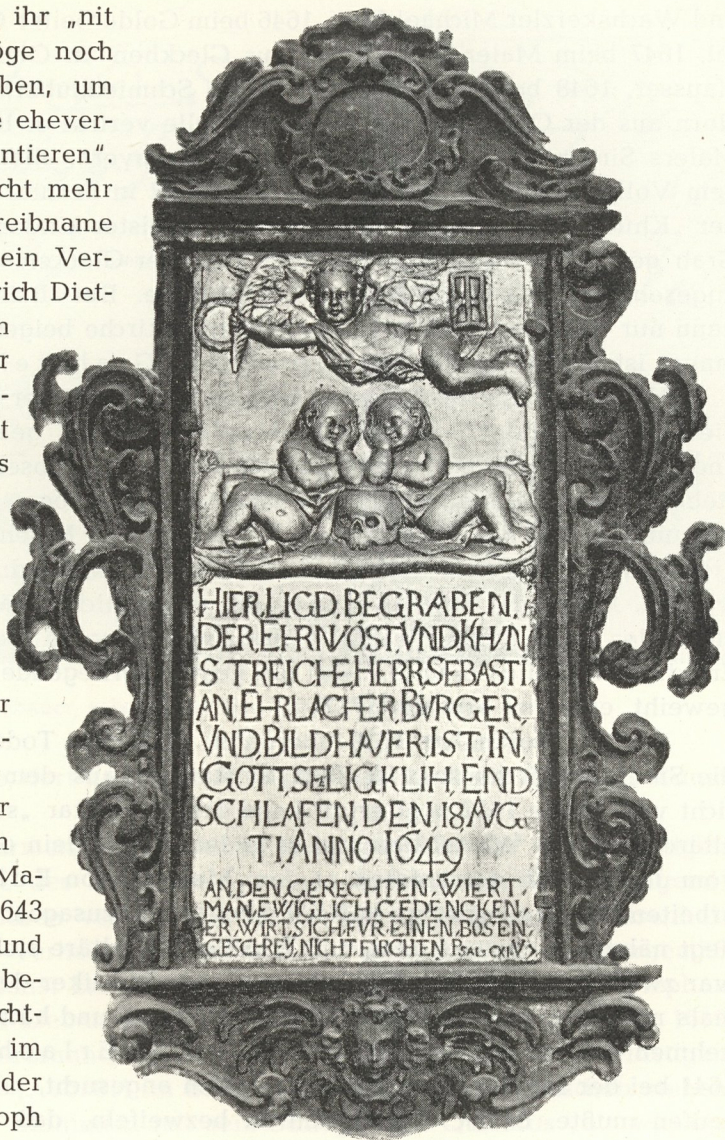 ihr „nit
öge noch
ben, um
ehever-
ntieren“.
cht mehr
reibname
ein Ver-
rich Diet-
n
r
-
t
s
HIER,LIGD,BEGRABEN,
DER,EHRNVÖST,VNDKHVN
STREICHE,HERR,SEBASTI
AN,EHRLACHER,BVRGER,
VND,BILDHAVER,IST,IN
GOTT,SELIGKLIH,END
SCHLAFEN,DEN,18AVG
TI,ANNO,1649
AN,DEN,GERECHTEN,WIERT,
MAN,EWIGLICH,GEDENCKEN
ER,WIRT,SICH,FVR,EINEN,BÖSEN
GESCHREY,NICHT,FVRCHTEN PSAL CXI V
r
-
r
n
Ma-
643
und
be-
cht-
im
der
oph